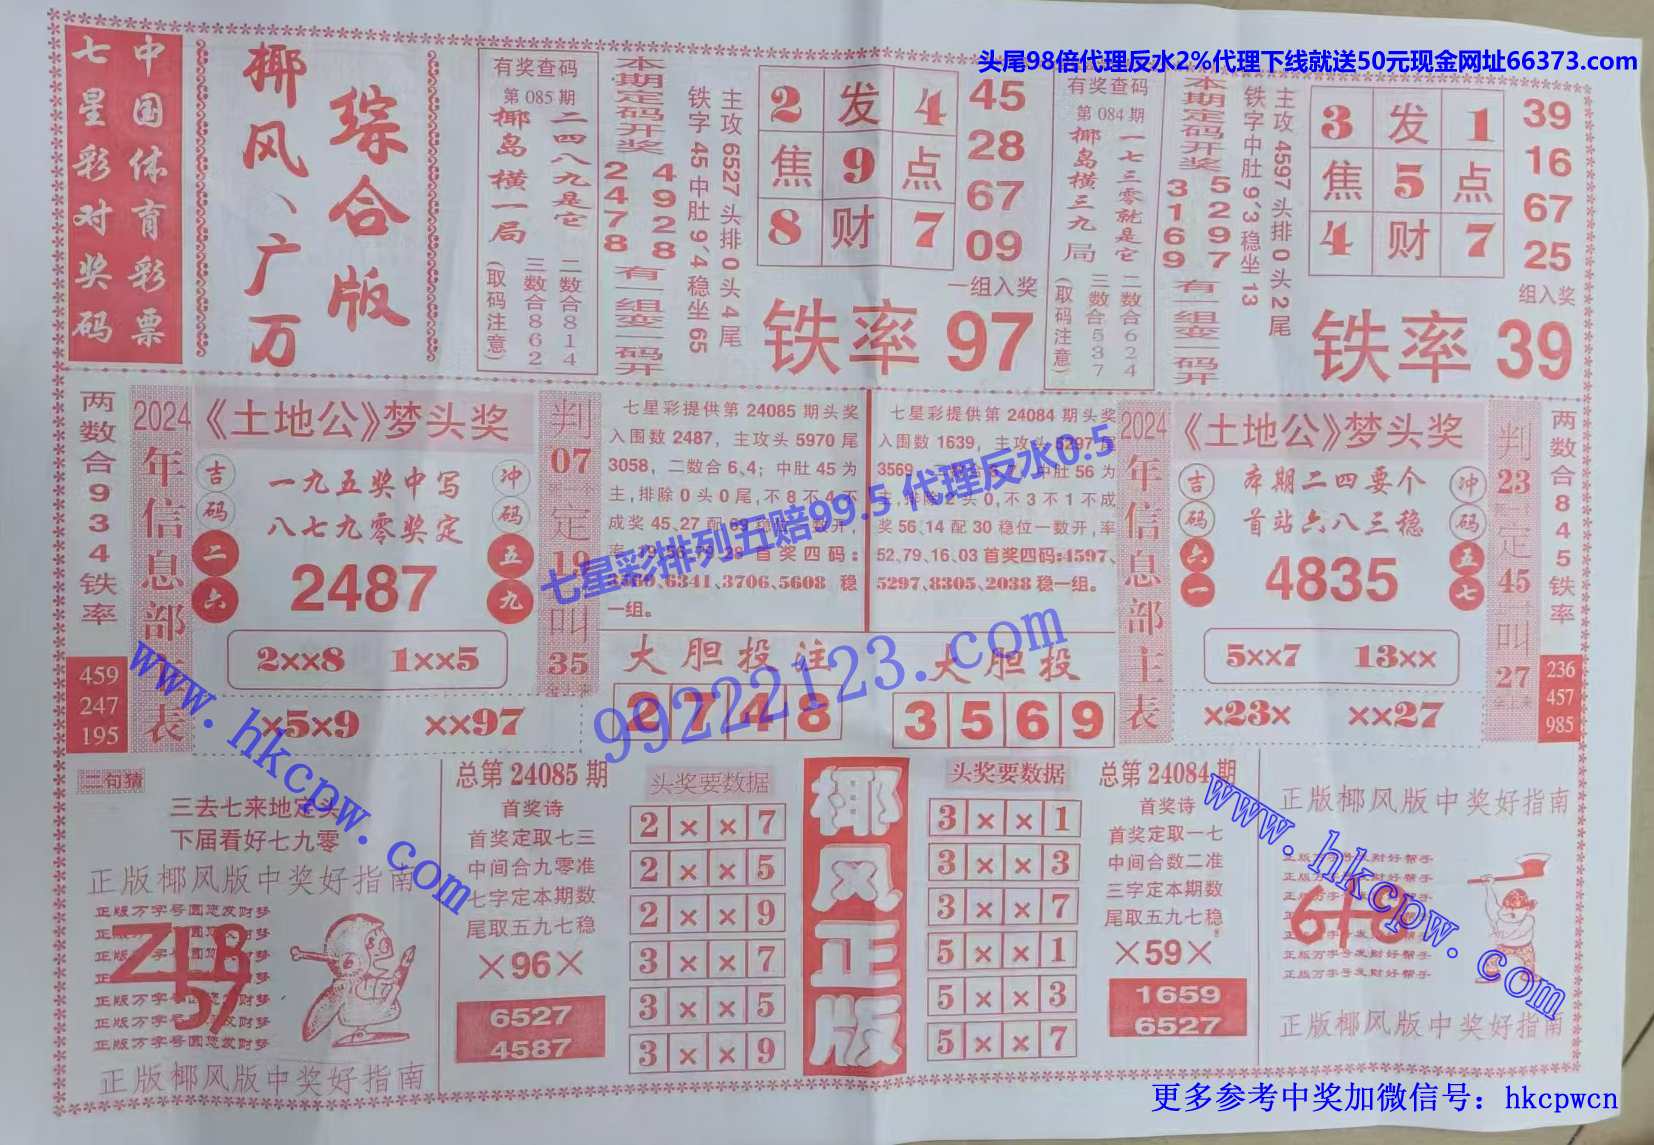 头尾98倍代理反水2%代理下线就送50元现金网址66373.com
中国体育彩票
七星彩对奖码
综合版
椰风、广万
有奖查码
第085期
二四八九是它
椰岛横一局
二数合814
三数合862
(取码注意)
本期定码开奖
4928
2478
有一组变一码开
主攻6527头排0头4尾
铁字45中肚9´4稳坐65
2 发 4
焦 9 点
8 财 7
45
28
67
09
一组入奖
铁率97
有奖查码
第084期
一七三零就是它
椰岛横三九局
二数合624
三数合537
(取码注意)
本期定码开奖
5297
3169
有一组变一码开
主攻4597头排0头2尾
铁字中肚9´3稳坐13
3 发 1
焦 5 点
4 财 7
39
16
67
25
组入奖
铁率39
两数合934铁率
459
247
195
2024年信息部主表
《土地公》梦头奖
吉码
二六
一九五奖中写
八七九零奖定
冲码
五九
2487
2××8 1××5
×5×9 ××97
判07定19叫35
七星彩提供第24085期头奖
入围数2487，主攻头5970尾
3058，二数合6、4；中肚45为
主，排除0头0尾，不8不4不
成奖45、27配69稳位一数开，
率 79、56、79、28首奖四码：
3560、6341、3706、5608 稳
一组。
大胆投注
2 7 4 8
七星彩提供第24084期头奖
入围数1639，主攻头5297尾
3569，二数合8、7，中肚56为
主，排除2头0，不3不1不成
奖56、14配30稳位一数开，率
52、79、16、03首奖四码：4597、
5297、8305、2038稳一组。
大胆投
3 5 6 9
2024年信息部主表
《土地公》梦头奖
吉码
六一
本期二四要个
首站六八三稳
冲码
五七
4835
5××7 13××
×23× ××27
判23定45叫27
两数合845铁率
236
457
985
七星彩排列五赔99.5 代理反水0.5
99222123.com
www.hkcpw.com
二句猜
三去七来地定头
下届看好七九零
正版椰风版中奖好指南
正版万字号圆您发财梦
正版万字号圆您发财梦
正版万字号圆您发财梦
正版椰风版中奖好指南
总第24085期
首奖诗
首奖定取七三
中间合九零准
七字定本期数
尾取五九七稳
×96×
6527
4587
头奖要数据
2 × × 7
2 × × 5
2 × × 9
3 × × 7
3 × × 5
3 × × 9
椰风正版
头奖要数据
3 × × 1
3 × × 3
3 × × 7
5 × × 1
5 × × 3
5 × × 7
总第24084期
首奖诗
首奖定取一七
中间合数二准
三字定本期数
尾取五九七稳
×59×
1659
6527
www.hkcpw.com
正版椰风版中奖好指南
正版万字号发财好帮手
正版万字号发财好帮手
正版万字号发财好帮手
正版椰风版中奖好指南
更多参考中奖加微信号：hkcpwcn